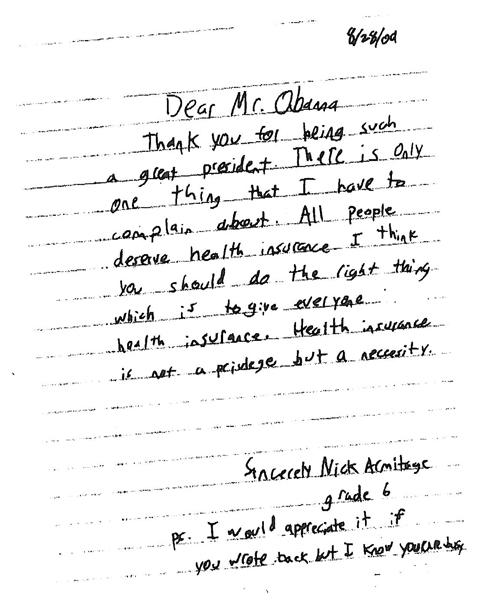 8/28/09
Dear Mr. Obama
Thank you for being such
a great president. There is only
one thing that I have to
complain about. All people
deserve health insurance I think
you should do the right thing
which is to give everyone
health insurance. Health insurance
is not a privlege but a necersity.
Sincerely Nick Armitage
grade 6
ps. I would appreciate it if
you wrote back but I know you are busy